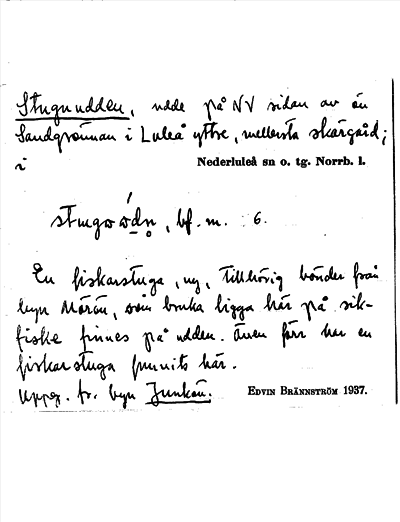 Stugnudden, udde på NV sidan av ön
Sandgrönnan i Luleå yttre, mellersta skärgård;
i Nederluleå sn o. tg. Norrb. l.
bf. m. 6.
En fiskarstuga, ny, tillhörig bönder från
byn Mörön, som bruka ligga här på sik-
fiske finnes på udden. Även förr har en
fiskarstuga funnits här.
Uppg. fr. byn Junkön.
EDVIN BRÄNNSTRÖM 1937.